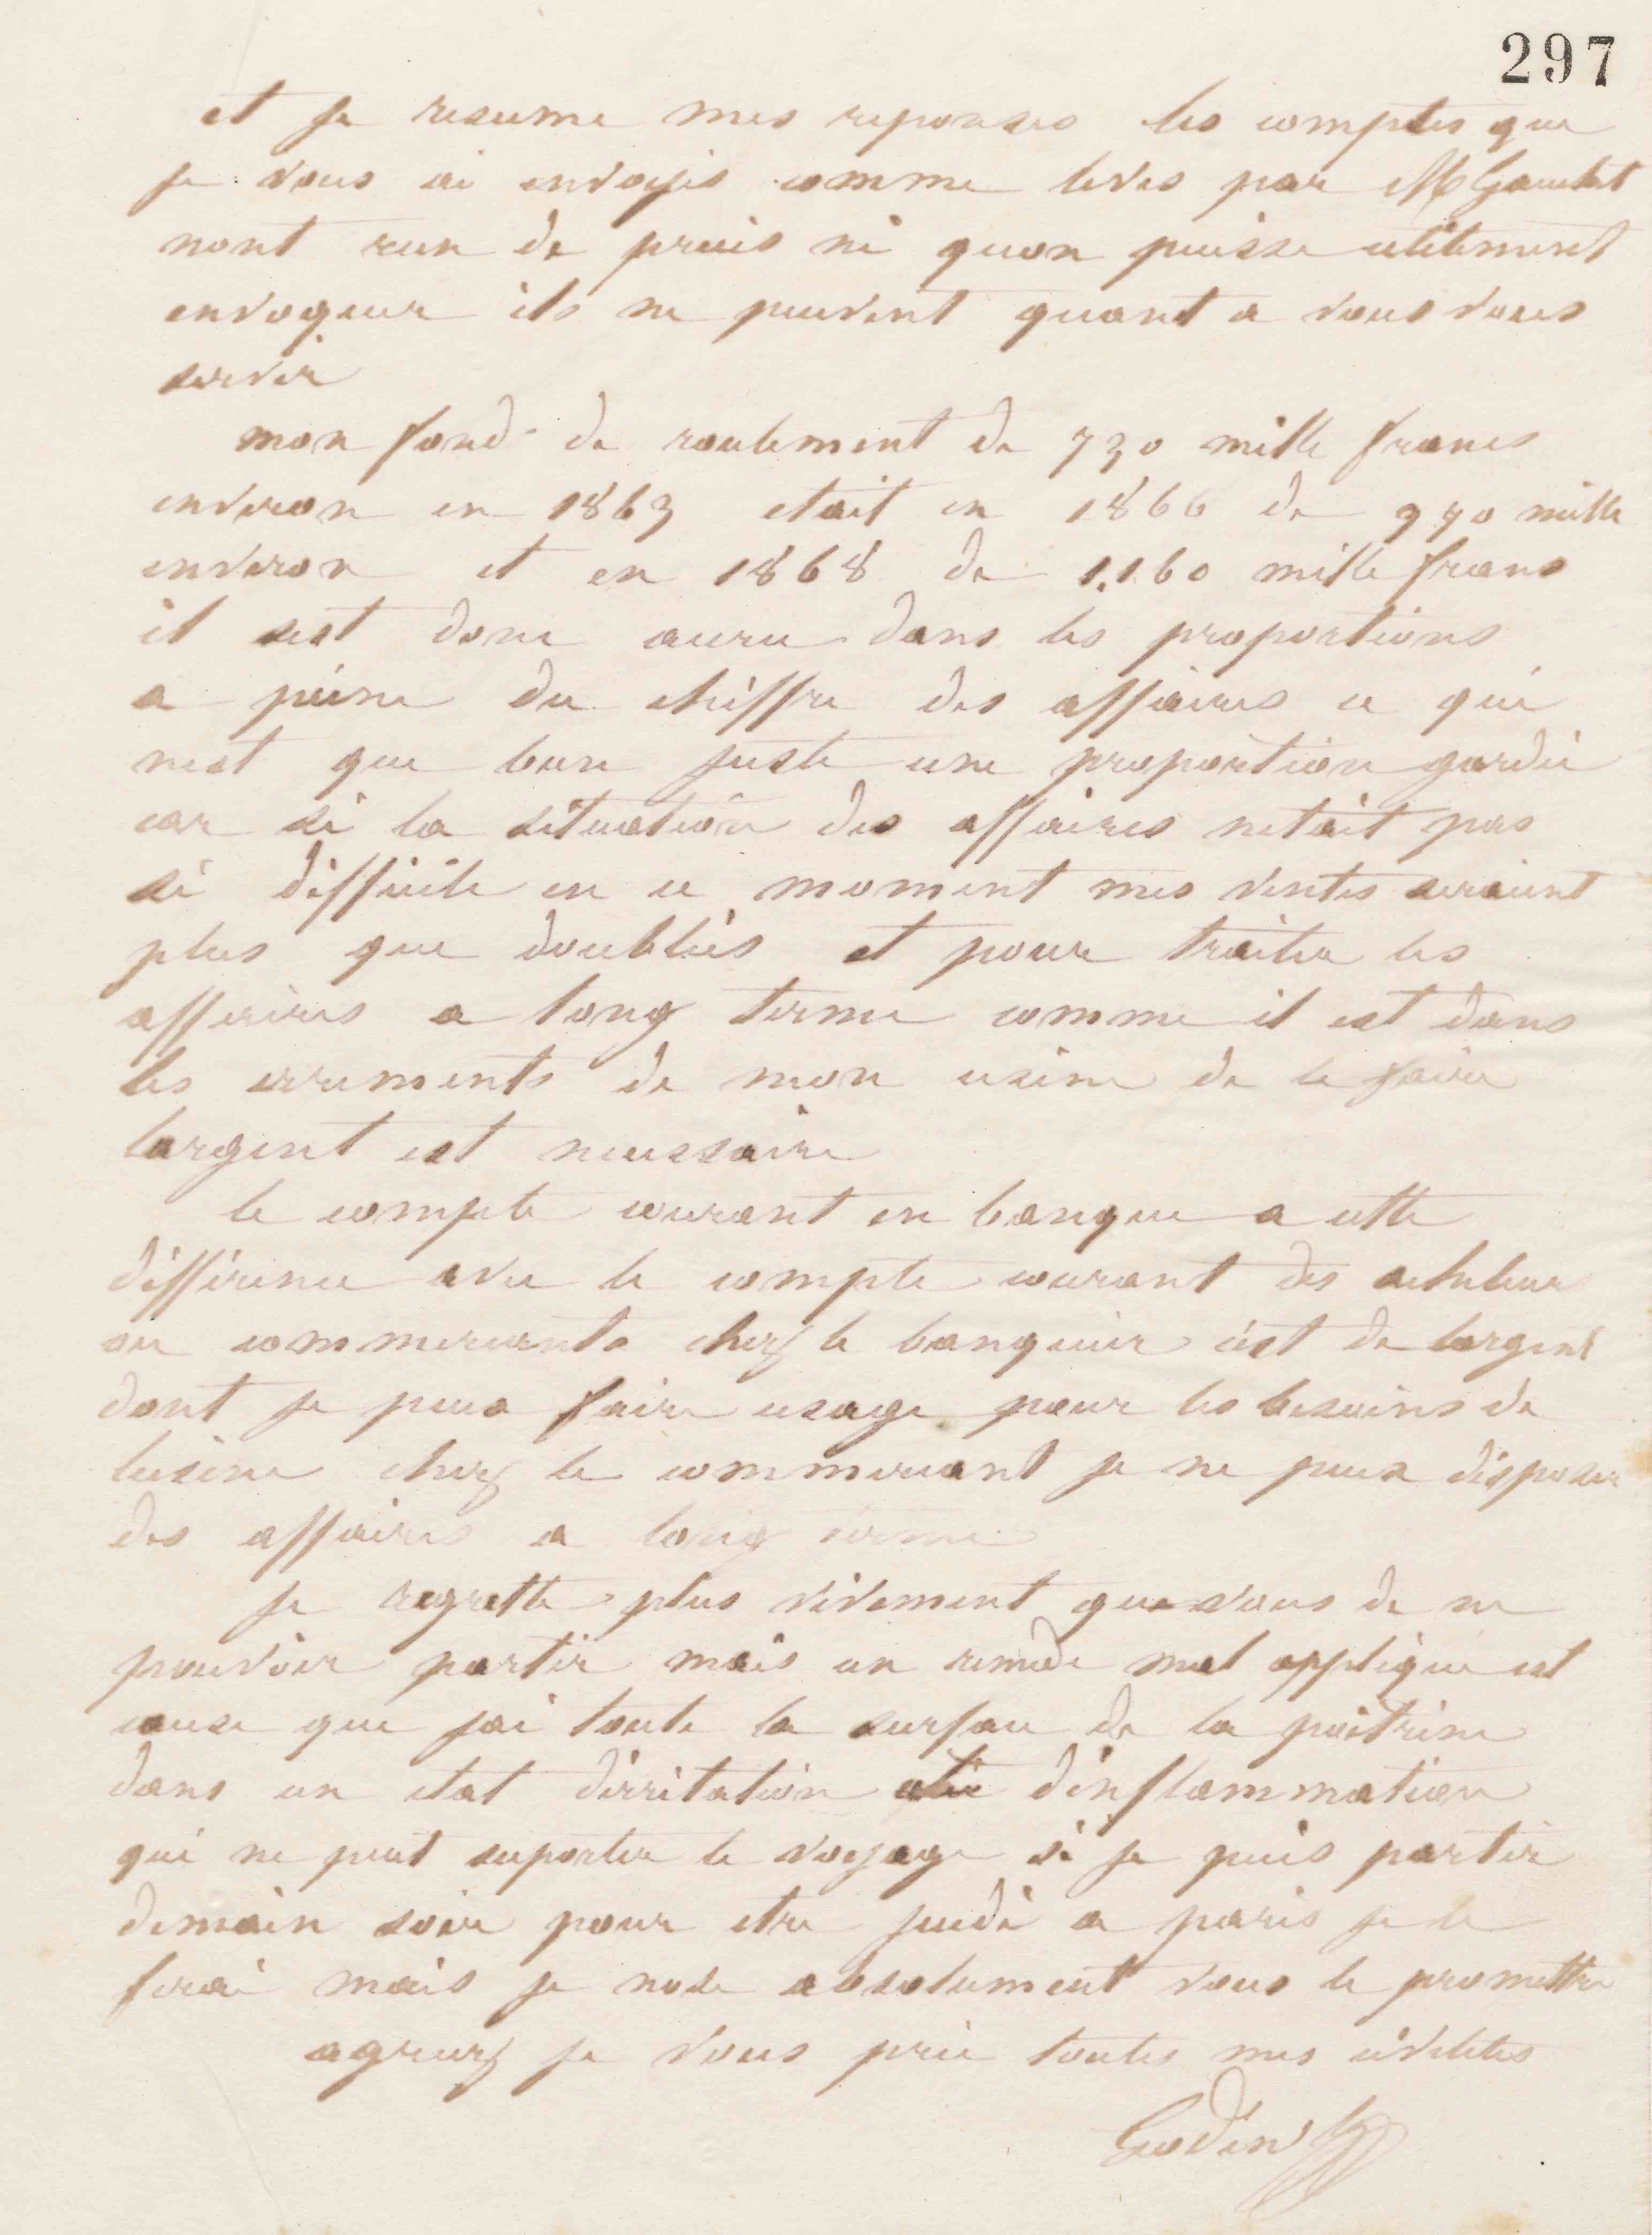 297
et je resume mes reponses les comptes que
je vous ai envoyés comme levés par M Gaudet
nont rien de précis ni quon puisse utilement
envoyer ils ne peuvent quant a vous vous
servir
mon fond de roulement de 730 mille francs
environ en 1863 etait en 1866 de 970 mille
environ et en 1868 de 1.160 mille francs
il sest donc accru dans les proportions
a peine du chiffre des affaires ce qui
nest que bien juste une proportion gardée
car si la situation des affaires netait pas
si difficile en ce moment mes ventes seraient
plus que doublées et pour traiter les
affaires a long terme comme il est dans
les errements de mon usine de le faire
largent est necessaire
le compte courant en banque a cette
différence avec le compte courant des acheteur
ou commercants chez le banquier cest de largent
dont je peux faire usage pour les besoins de
lusine chez le commercant je ne peux disposer
des affaires a long terme
je regrette plus vivement que vous de ne
pouvoir partir mais un remede mal appliqué est
cause que jai toute la surface de la poitrine
dans un etat dirritation dinflammation
qui ne peut suporter le voyage si je puis partir
demain soir pour etre jeudi a paris je le
ferai mais je nose absolument vous le promettre
agreez je vous prie toutes mes civilites
Godin